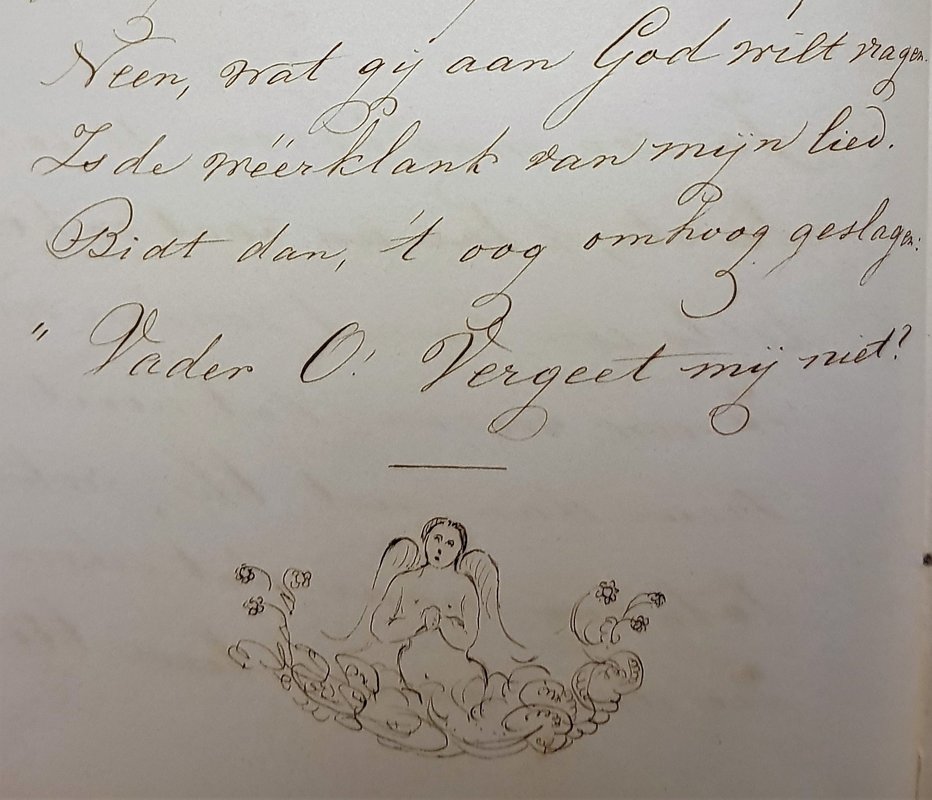 Neen, wat gij aan God wilt vragen.
Is de wéérklank van mijn lied.
Bidt dan, 't oog omhoog geslagen:
" Vader O! Vergeet mij niet?